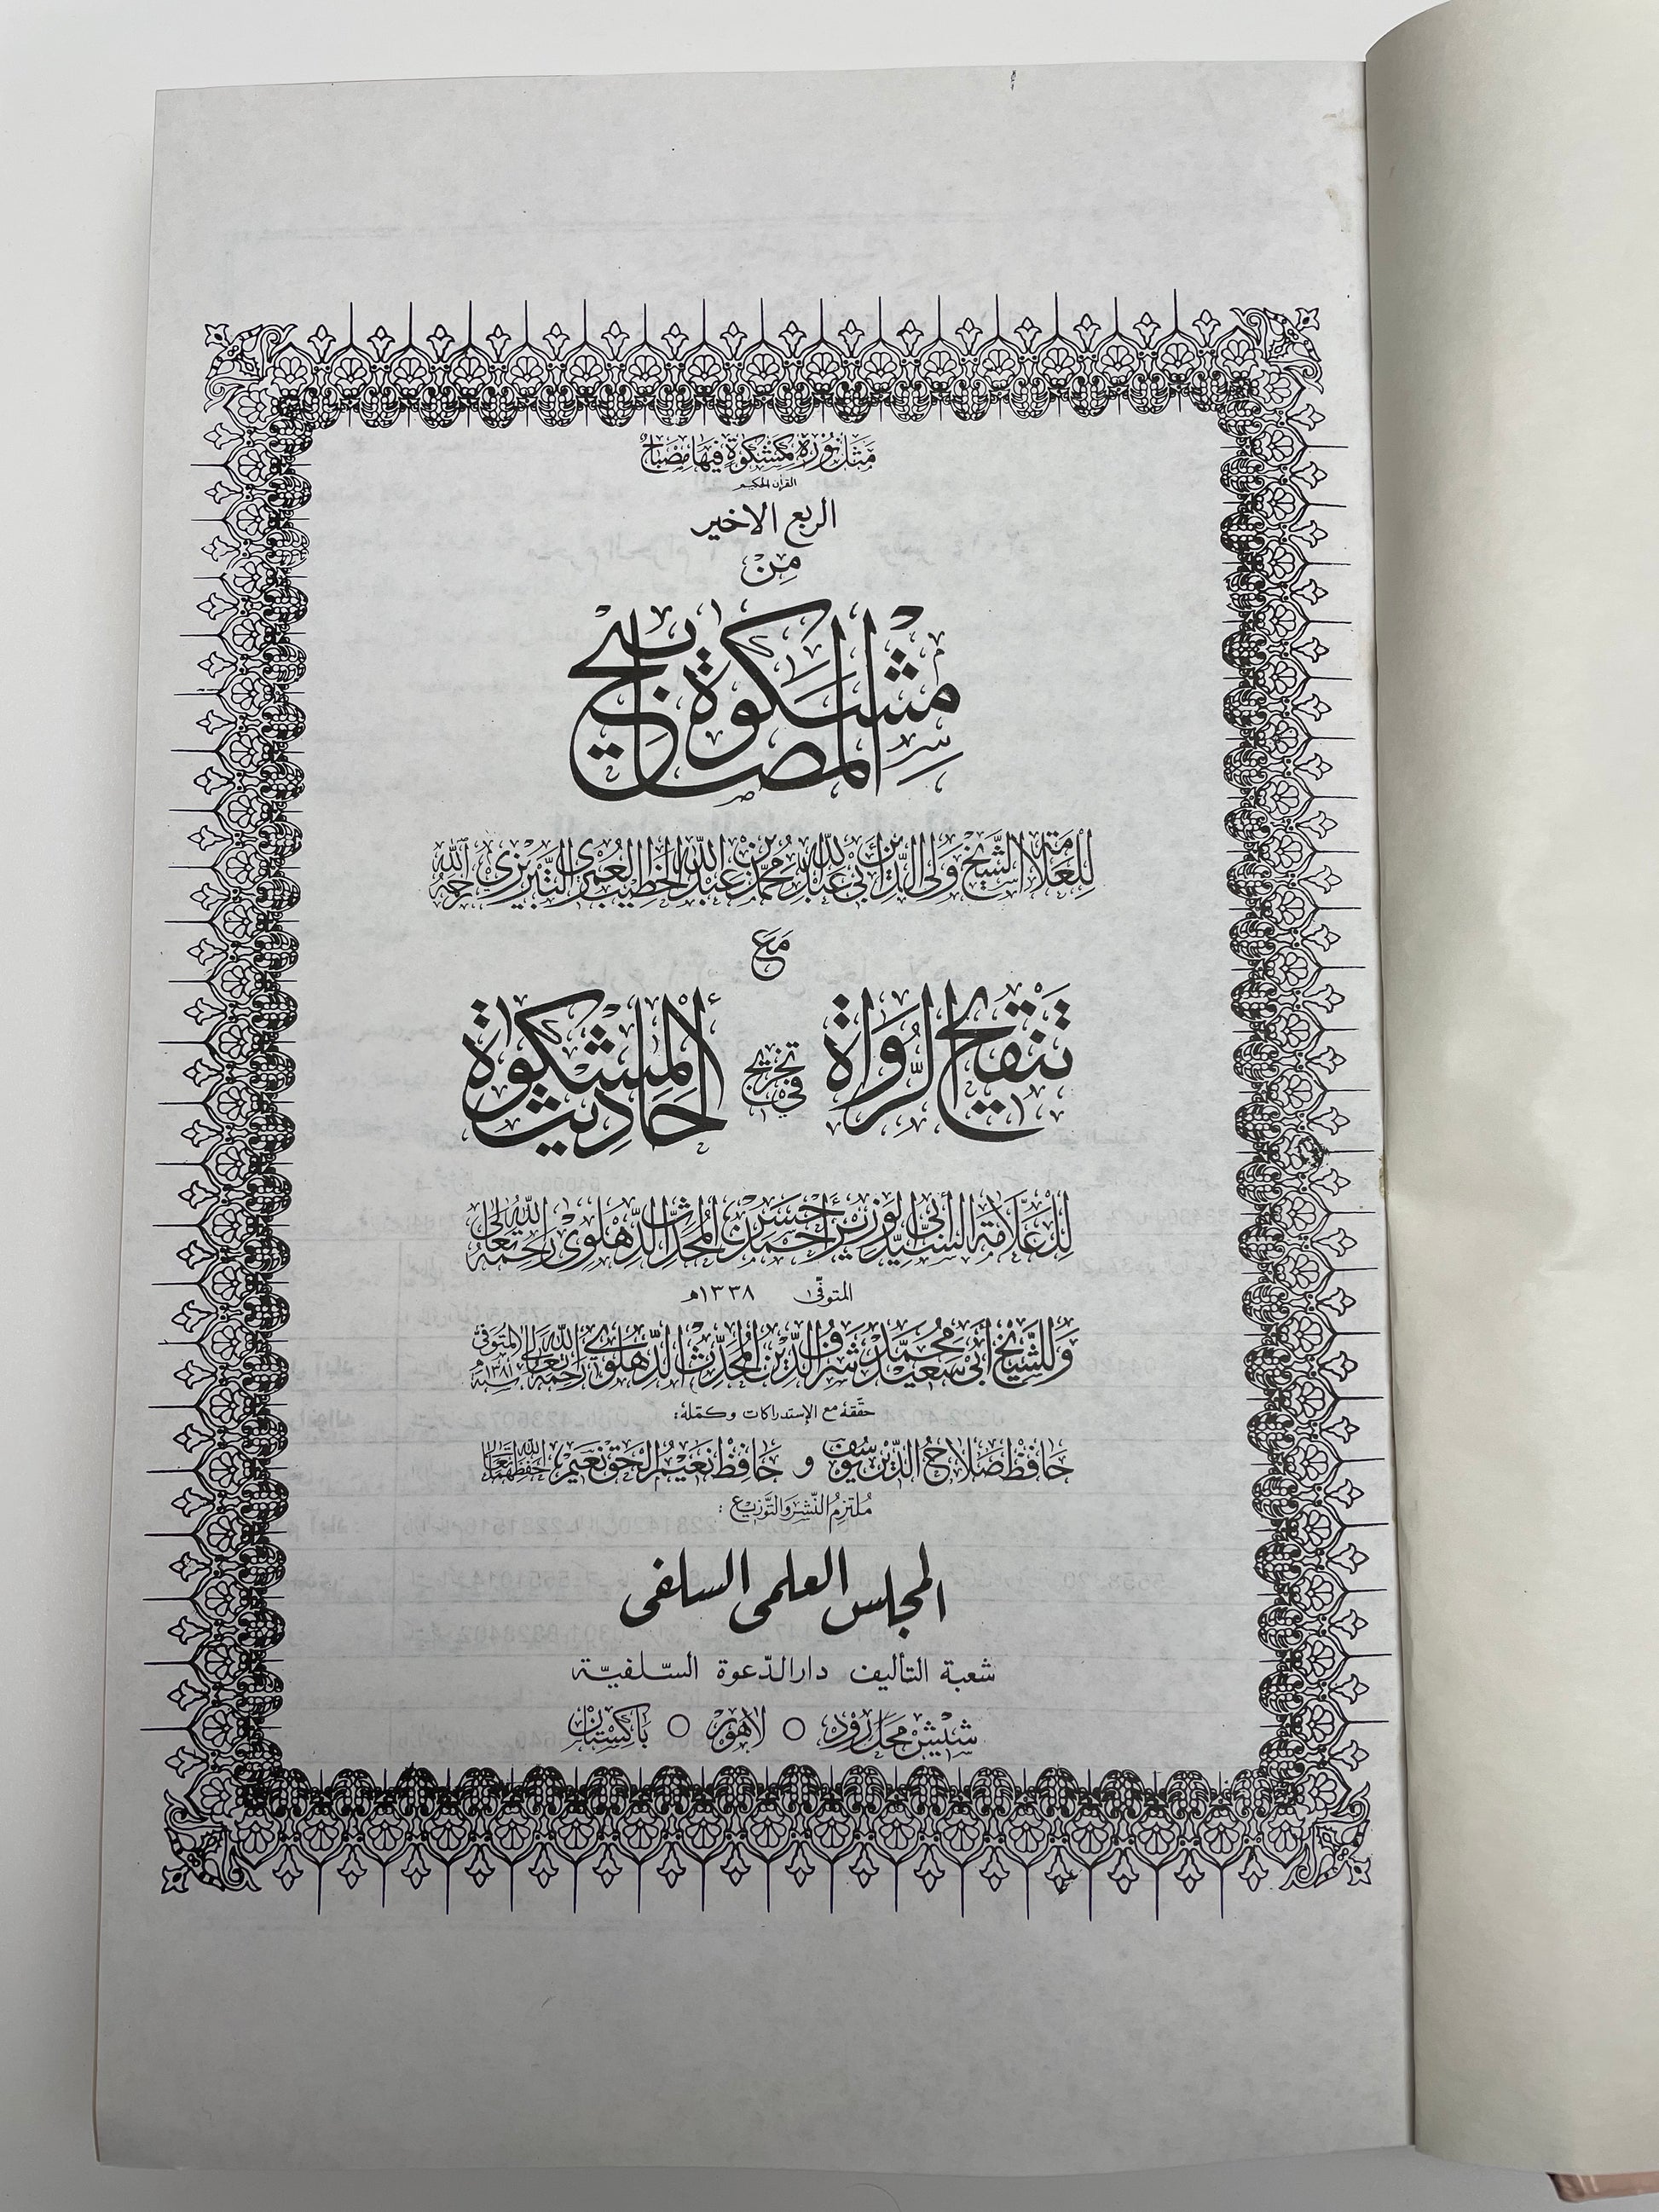 مَثَلُ نُوْرِهٖ كَمِشْكٰوةٍ فِيْهَا مِصْبَاحٌ
القرآن الحكيم
الربع الاخير
مِنْ
مشكوة المصابيح
للعلامة الشيخ ولي الدين أبي عبد الله محمد بن عبد الله الخطيب العمري التبريزي رحمه الله
مَعَ
تنقيح الرواة في تخريج أحاديث المشكوة
للعلامة السيد أبي الوزير أحمد حسن المحدث الدهلوي رحمه الله تعالى
المتوفّى ١٣٣٨هـ
وللشيخ أبي سعيد محمد شرف الدين المحدث الدهلوي رحمه الله تعالى المتوفى سنة ١٣٨١هـ
حقّقه مع الإستدراكات وكمّله:
حافظ صلاح الدين يوسف و حافظ نعيم الحق نعيم حفظهما الله تعالى
مُلتزم النّشر والتّوزيع :
المجلس العلمى السلفى
شعبة التأليف دار الدّعوة السّلفيّة
شيش محل رود ○ لاهور ○ باكستان